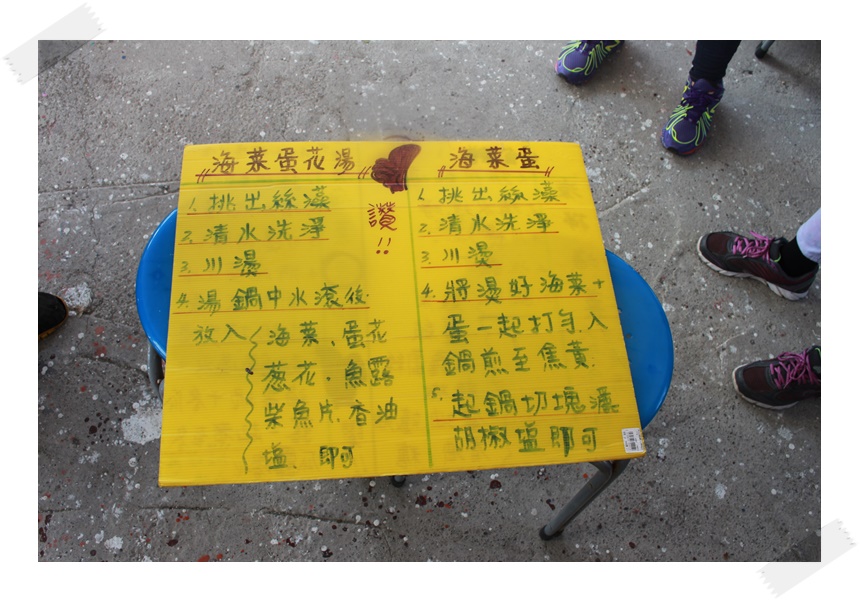 海菜蛋花湯
1. 挑出絲藻
2. 清水洗淨
3. 川燙
4. 湯鍋中水滾後
放入 海菜、蛋花
葱花、魚露
柴魚片、香油
塩、即可
讚!!
海菜蛋
1. 挑出絲藻
2. 清水洗淨
3. 川燙
4. 將燙好海菜+
蛋一起打勻.入
鍋煎至焦黃.
5. 起鍋切塊灑
胡椒塩即可